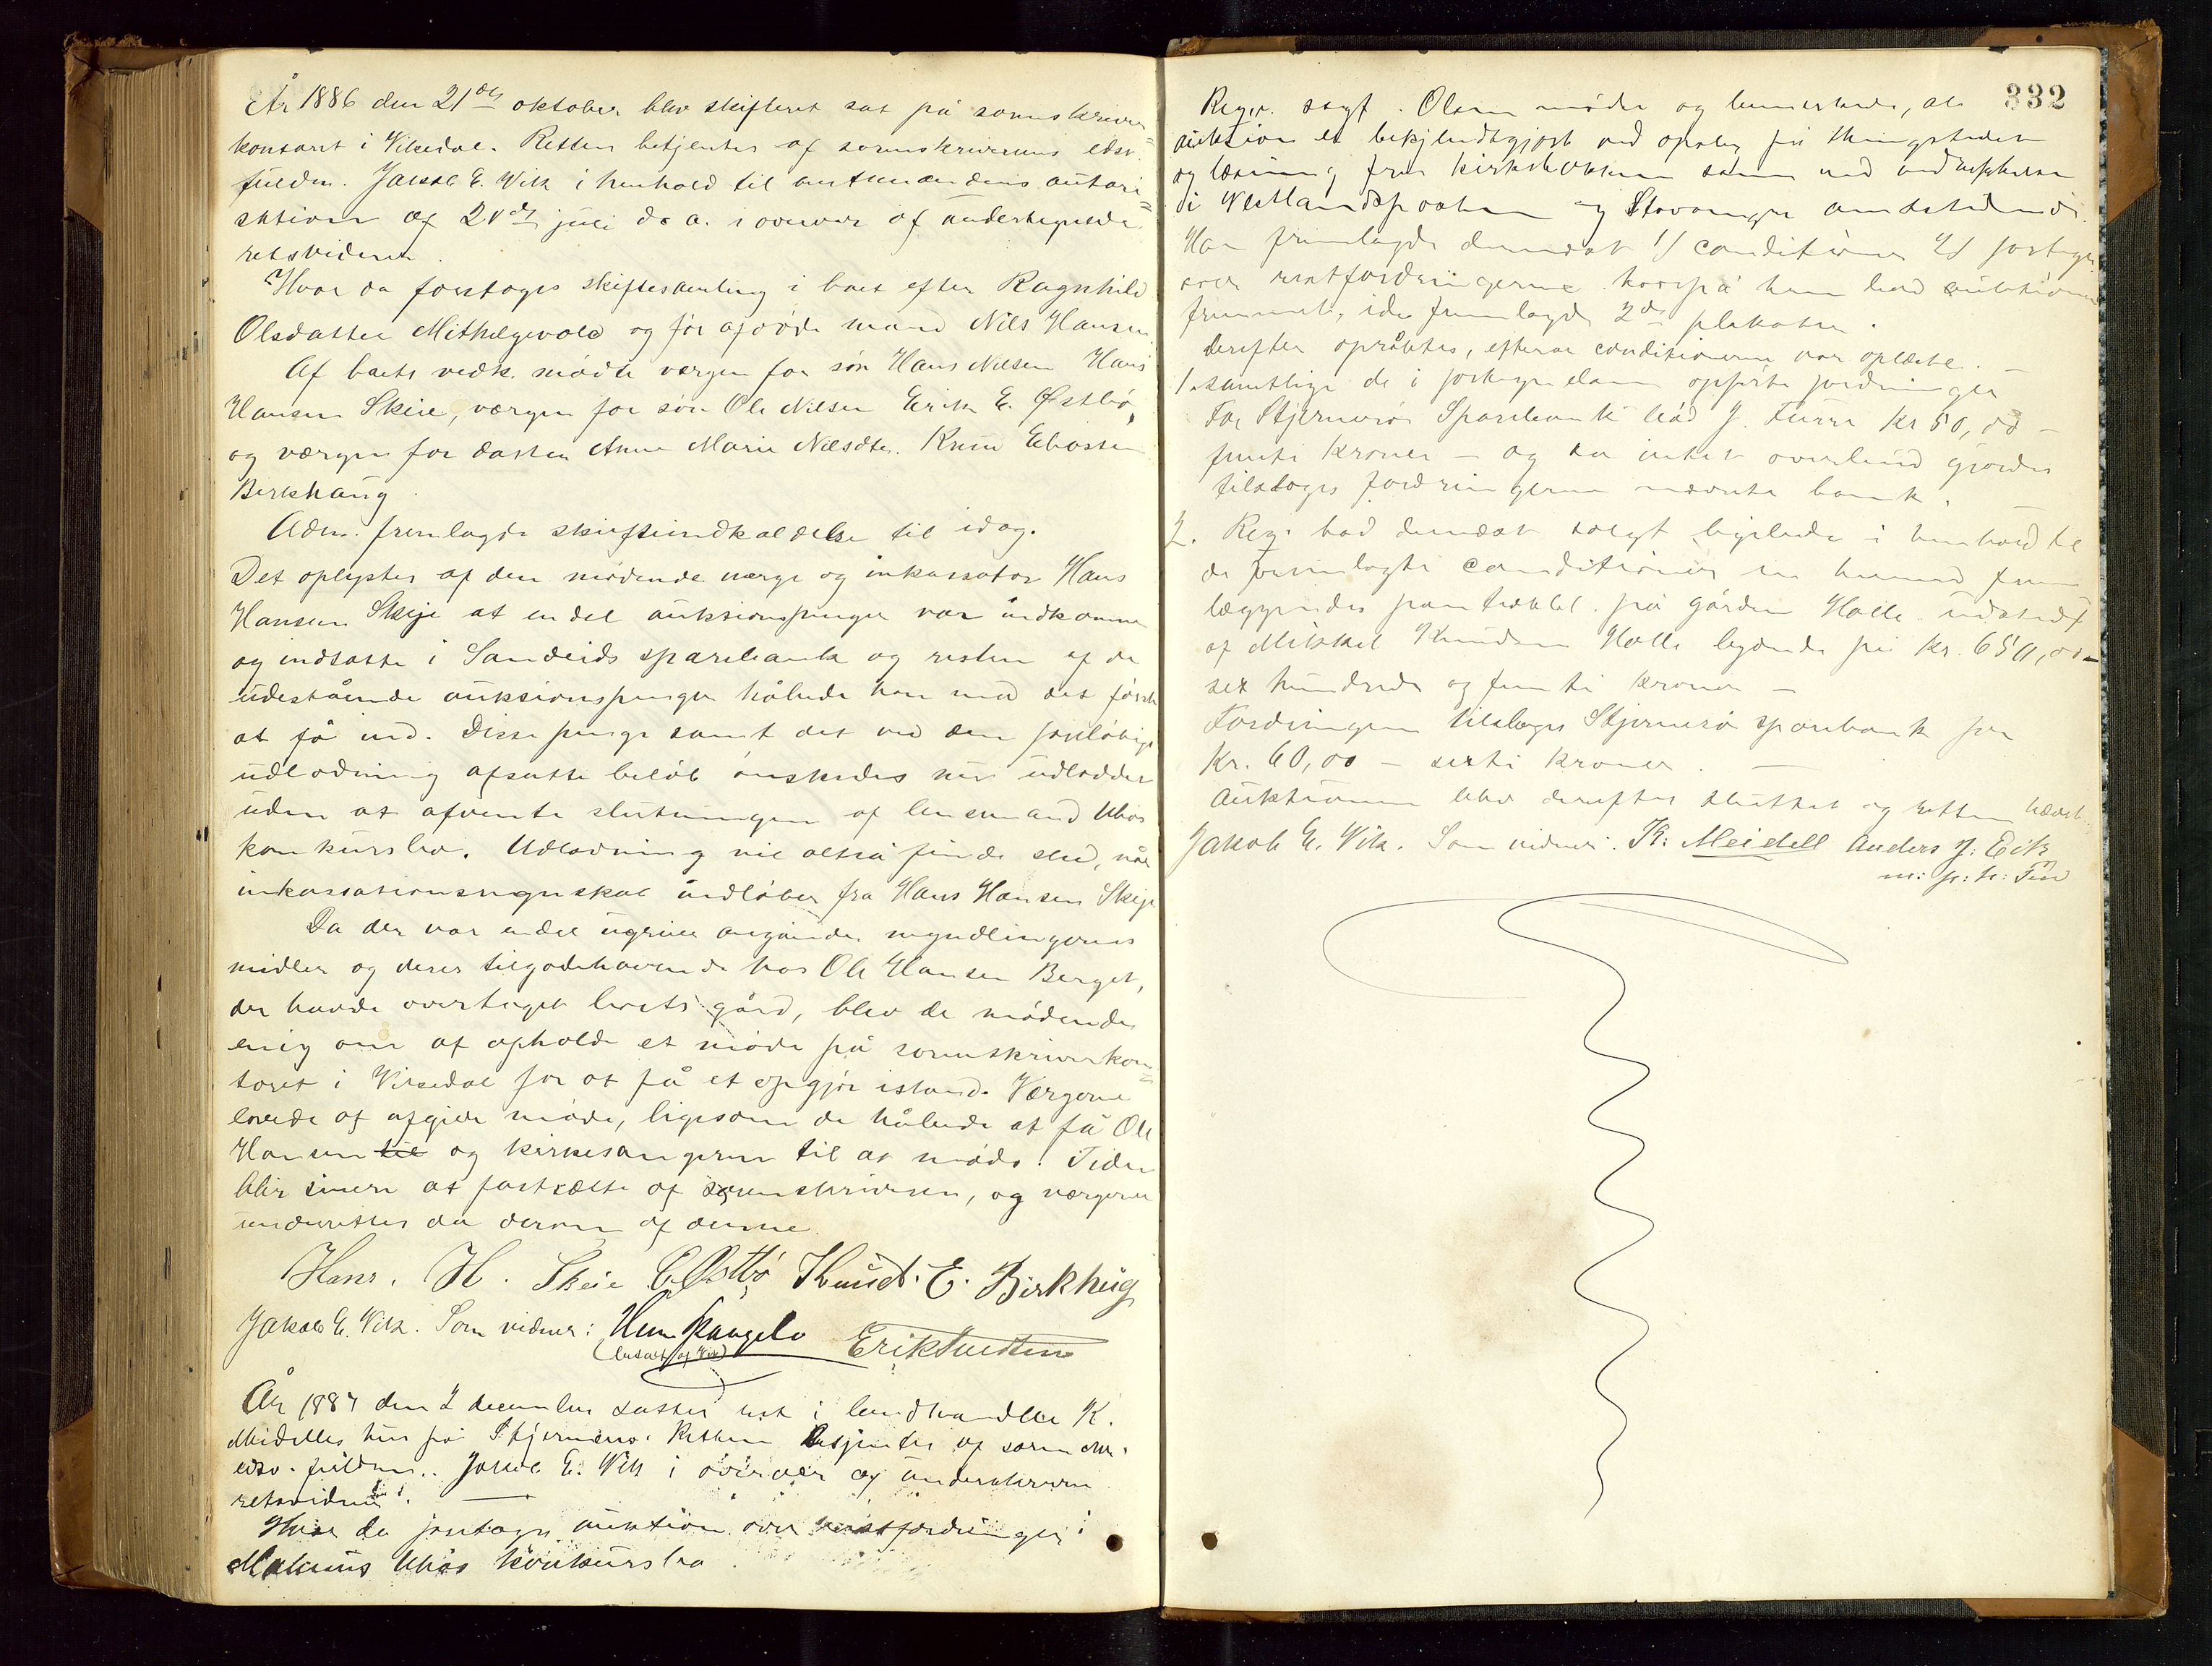 År 1886 den 21de oktober blev skifteret sat på sorenskriver=
kontoret i Vikedal. Retten betjentes af sorenskriverens edsv.
fuldm. Jakob E. Vik i henhold til amtmandens autori=
sation af 21de juli d. a. i overvær af undertegnede
retsvidner.
Hvor da foretoges skiftesamling i boet efter Ragnhild
Olsdatter Mithelgevold og før afdøde mand Nils Hansen
Af boets vedk. mødte vergen for søn Hans Nilsen Hans
Hansen Skeie, værgen for søn Ole Nilsen Erik E. Østbø,
og værgen for datter Anne Marie Nilsdtr. Knud
Berkhaug.
Adm. fremlagde skifteindkaldelse til idag.
Det oplystes af den mødende værge og inkassator Hans
Hansen Skeje at en del auktionspenge var indkomne
og indsatte i Sandeids sparebank og resten af de
udestående auktionspenge håbede han med det første
at få ind. Disse penge samt det ved den foreløbige
udlodning afsatte beløb ønskedes nu udloddet
uden at afvente slutningen af lensmand Uhos
konkursbo. Udlodning vil altså finde sted, når
inkassationsregnskab indløber fra Hans Hansen Skeje
Da der var endel ugreie angående myndlingernes
midler og deres tilgodehavende hos Ole Hansen Berget,
der havde overtaget boets gård, blev de mødende
enig om at opholde et møde på sorenskriverkon=
toret i Vikedal for at få et opgjør istand. Værgerne
lovede at afgive møde, ligesom de håbede at få Ole
Hansen til og kirkesangeren til at møde. Tiden
blir senere at fastsætte af sorenskriveren, og værgerne
underrettes da derom af denne.
Hans. H. Skeie E. Østbø Knud. E. Birkhúg
Jakob E. Vik. Som vidner:
Erik
År 1887 den 2 december sattes ret i landhandler K.
Meidells hus på Stjernerø. Retten betjentes af sorenskr.
edsv. fuldm. Jakob E. Vik i overvær af underskrevne
retsvidner.
Hvor da foretoges auktion over restfordringer i
Uhos konkursbo.
332
Olsen møder og bemerkede, at
auktion er bekjendtgjort ved opslag på thingstedet
og læsning fra kirkebakken samt ved
i Vestlandsposten og Stavanger amtstidende.
Han fremlagde dernæst 1/ conditioner 2/ fortegn.
over restfordringerne hvorpå han bad auktionen
fremmet, idet fremlagde 2de plakater.
derefter opråbtes, efterat conditionerne var oplæste.
1. samtlige de i fortegnelsen opførte fordringer
For Stjernerø Sparebank bød J. Furre kr 50,00 –
femti kroner – og da intet overbud gjordes
tilsloges fordringerne nævnte bank.
2. bad dernæst solgt ligeledes i henhold til
de fremlagte conditioner en hermed frem
læggendes panteobl. på gården Halle udstedt
af Mikkel Knudsen Halle lydende på kr. 650,00 –
sex hundrede og femti kroner –
Fordringen tilsloges Stjernerø sparebank for
Kr. 60,00 – sexti kroner.
Auktionen blev derefter sluttet og retten hævet.
Jakob E. Vik. Som vidner: K. Meidell Anders J. Eik
m. p. p: